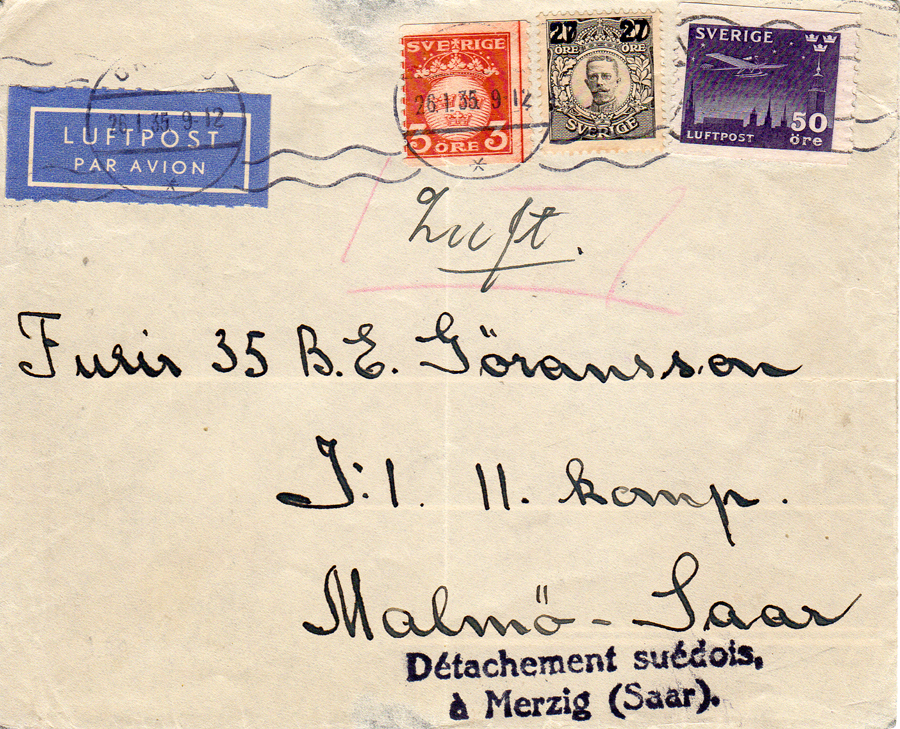 SVERIGE
3 ÖRE 3
27 27
ÖRE ÖRE
SVERIGE
SVERIGE
LUFTPOST
50
öre
26.1.35. 9-12
26.1.35. 9-12
LUFTPOST
PAR AVION
Luft.
Furir 35 B.E. Göransson
I:1. 11. komp.
Malmö-Saar
Détachement suédois,
à Merzig (Saar).